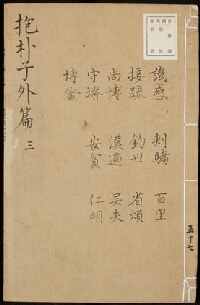 五十七
譏惑 刺驕 百里
接疏 鈞世 省煩
尚博 漢過 吳失
守塉 安貧 仁明
博喻
抱朴子外篇 三